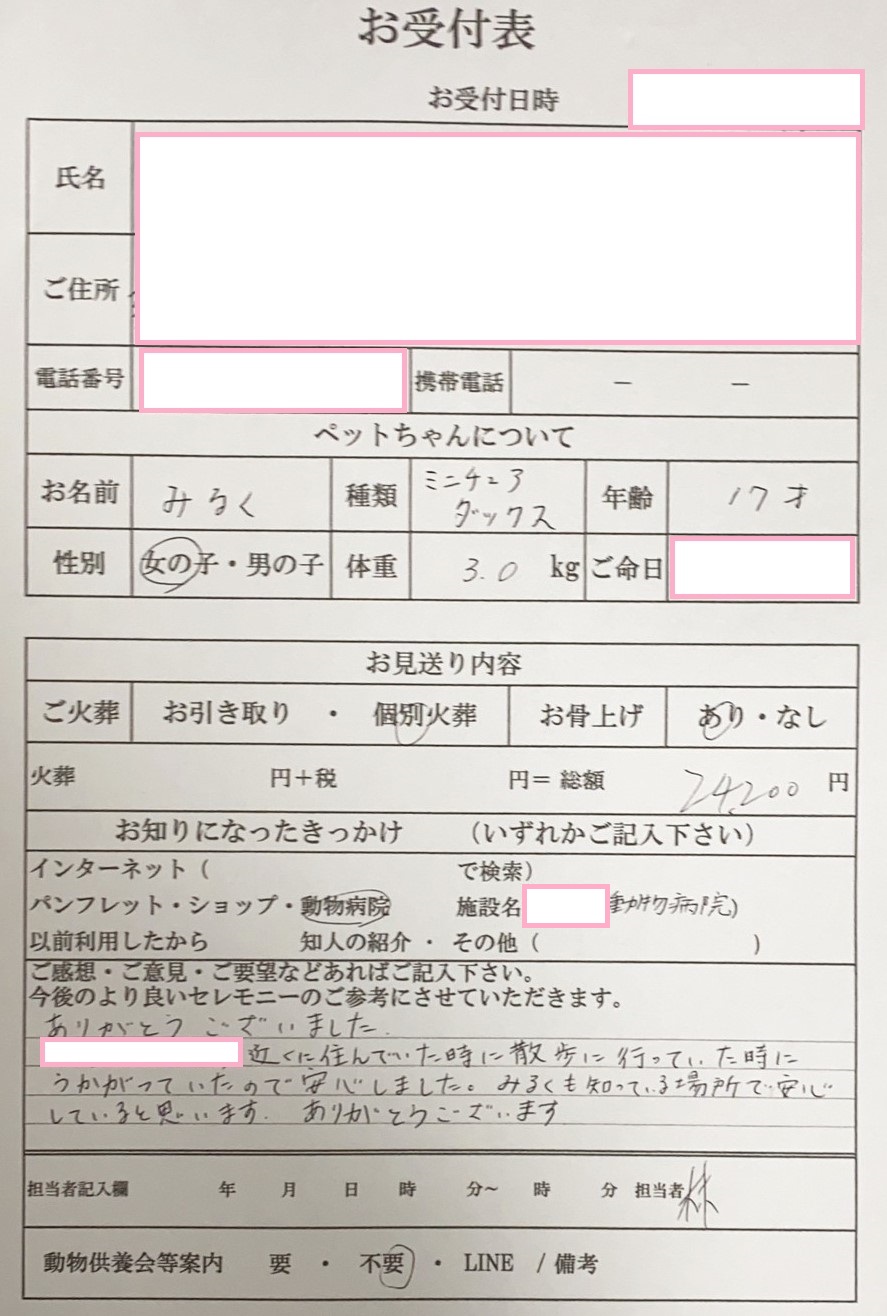 お受付表
お受付日時
氏名
ご住所
電話番号 携帯電話 ー ー
ペットちゃんについて
お名前 みるく 種類 ミニチュア ダックス 年齢 17才
性別 女の子・男の子 体重 3.0 kg ご命日
お見送り内容
ご火葬 お引き取り ・ 個別火葬 お骨上げ あり・なし
火葬 円＋税 円＝ 総額 24,200 円
お知りになったきっかけ （いずれかご記入下さい）
インターネット（ で検索）
パンフレット・ショップ・動物病院 施設名 動物病院)
以前利用したから 知人の紹介 ・ その他（ ）
ご感想・ご意見・ご要望などあればご記入下さい。
今後のより良いセレモニーのご参考にさせていただきます。
ありがとうございました.
近くに住んでいた時に散歩に行っていた時に
うかがっていたので安心しました。みるくも知っている場所で安心
していると思います. ありがとうございます
担当者記入欄 年 月 日 時 分～ 時 分 担当者 林
動物供養会等案内 要 ・ 不要 ・ LINE / 備考